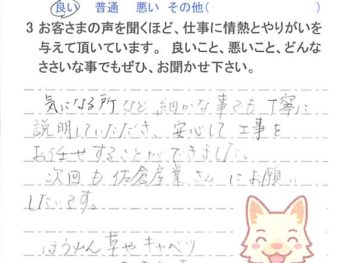 良い 普通 悪い その他(
3 お客さまの声を聞くほど、仕事に情熱とやりがいを
与えて頂いています。 良いこと、悪いこと、どんな
ささいな事でもぜひ、お聞かせ下さい。
気になる所など細かな事でも丁寧に
説明していただき、安心して工事を
お任せすることができました。
次回も佐倉産業さんにお願い
したいです。
ほうれん草やキャベツ